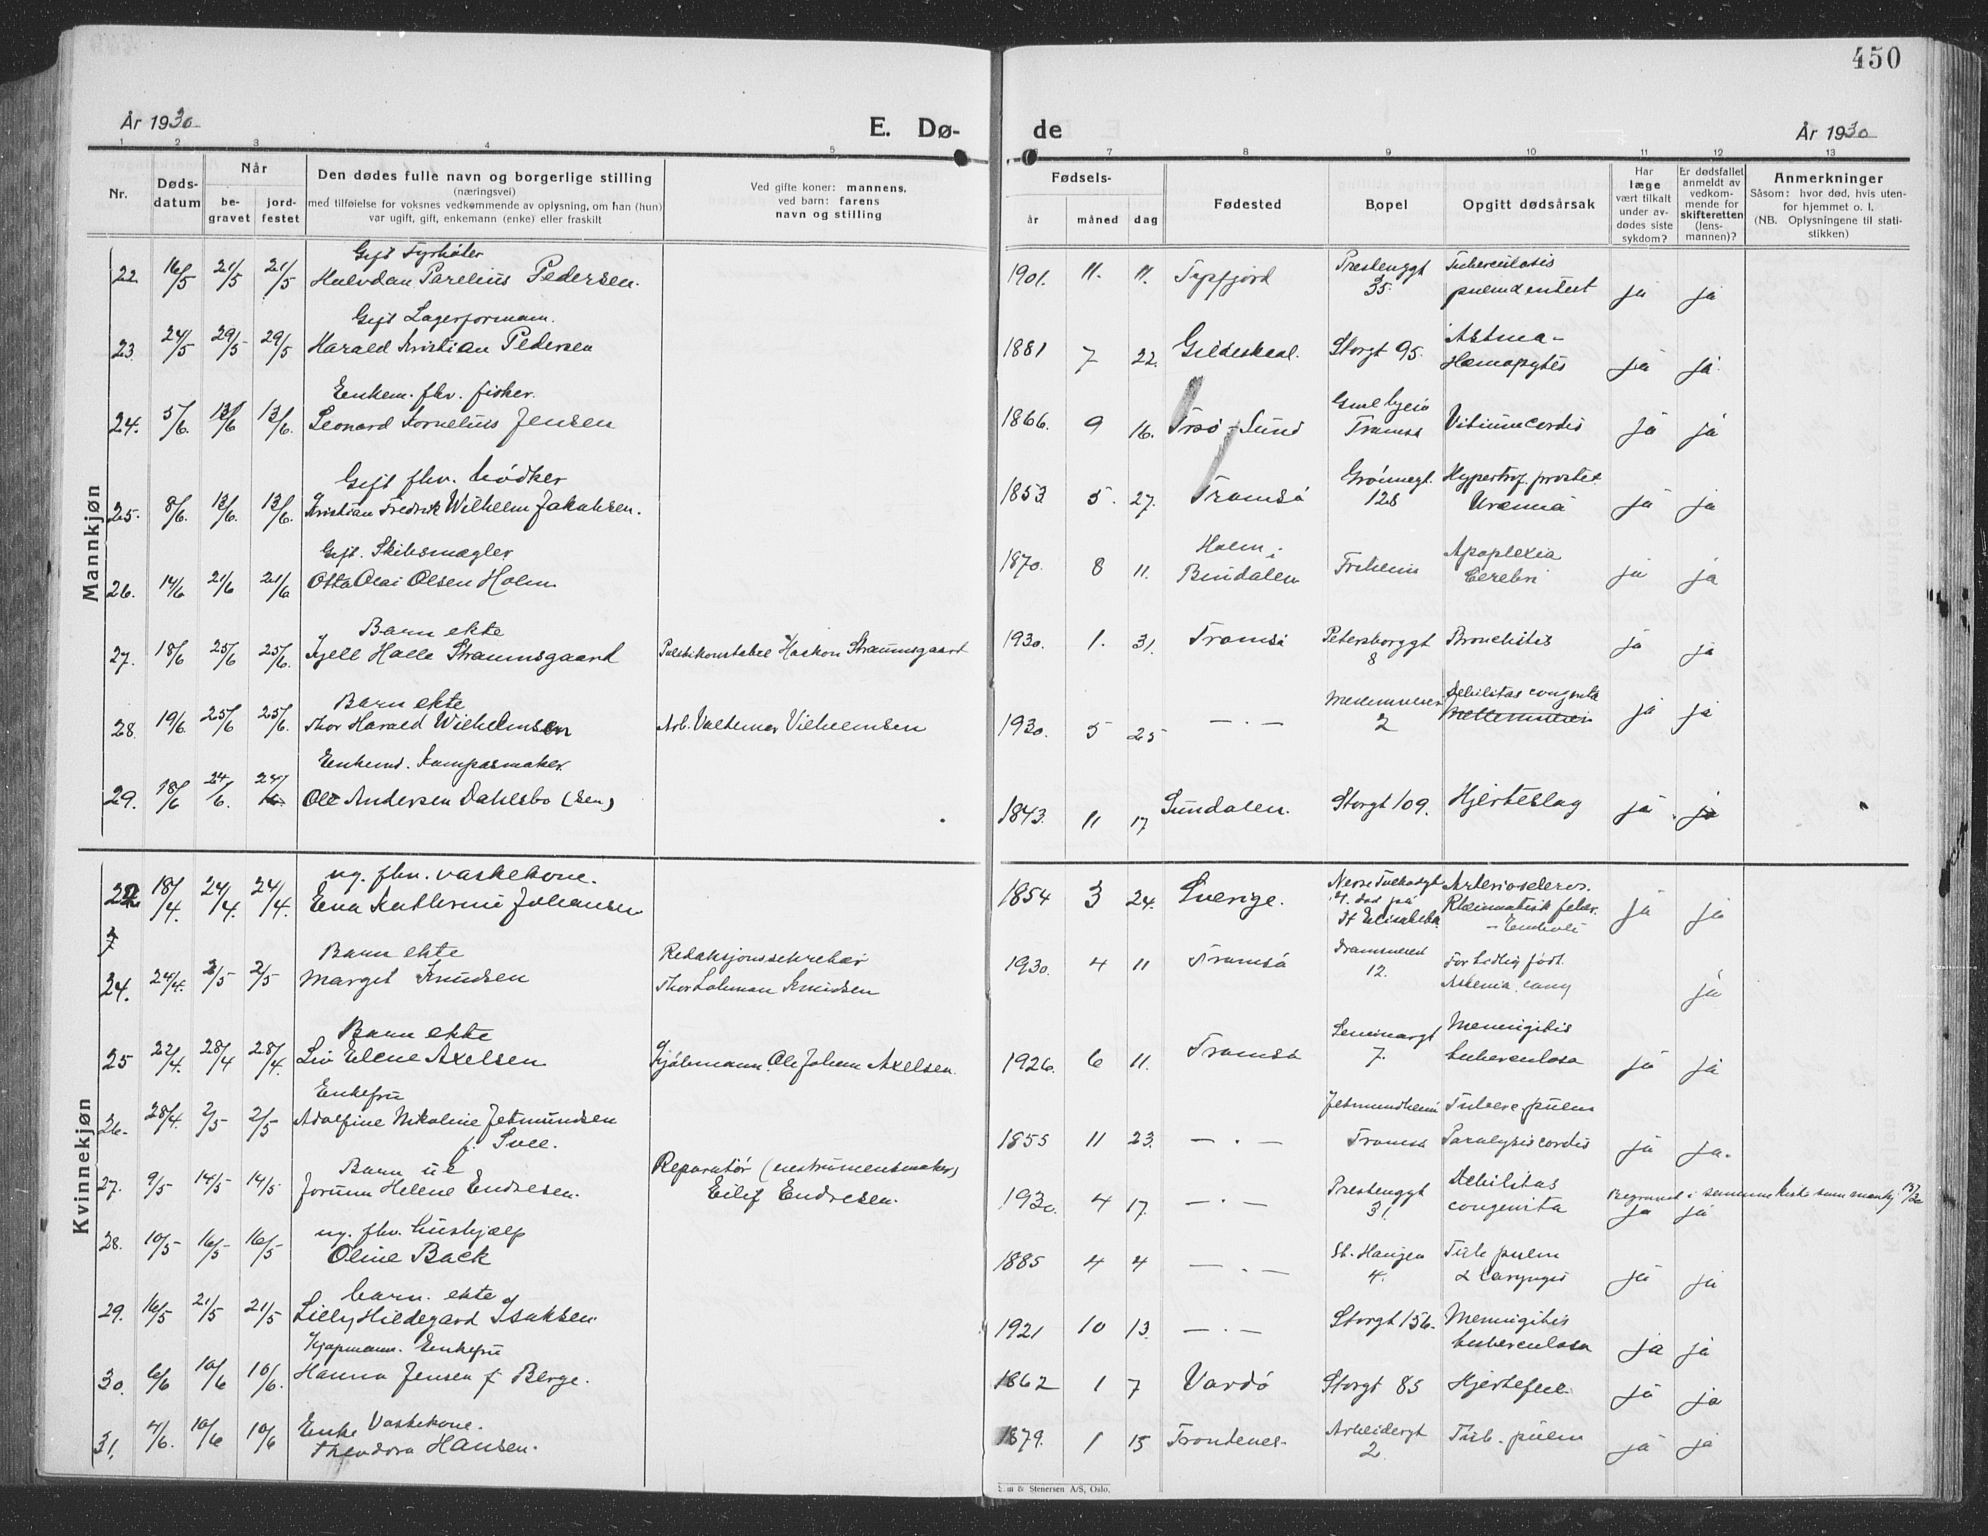 450
År 1930
E. Dø-
de
År 1930
1 2 3 4 5
6 7 8 9 10 11 12 13
Nr.
Døds-
datum
Når
be-
gravet
jord-
festet
Den dødes fulle navn og borgerlige stilling
(næringsvei)
med tilføielse for voksnes vedkommende av oplysning, om han (hun)
var ugift, gift, enkemann (enke) eller fraskilt
Ved gifte koner: mannens,
ved barn: farens
navn og stilling
Fødsels-
år måned dag
Fødested
Bopel
Opgitt dødsårsak
Har
læge
vært tilkalt
under av-
dødes siste
sykdom?
Er dødsfallet
anmeldt av
vedkom-
mende for
skifteretten
(lens-
mannen)?
Anmerkninger
Såsom: hvor død, hvis uten-
for hjemmet o. l.
(NB. Oplysningene til stati-
stikken)
Mannkjøn
Gift Fyrbøter
22. 16/5 21/5 21/5 Halvdan Parelius Pedersen. 1901. 11. 11. Syltefjord Prestenggt 35. Tuberculosis pulm ja ja
Gift Lagerformann.
23. 24/5 29/5 29/5 Harald Kristian Pedersen 1881 7 22. Gildeskaal. Storgt 95. Astma - Hæmoptyses ja ja.
Enkem. fhv. fisker.
24. 5/6. 13/6 13/6. Leonard Kornelius Jensen 1866. 9 16. Trsø-Sund Tromsø Vitium cordis ja ja
Gift fhv. bødker
25. 8/6. 13/6. 13/6. Kristian Fredrik Wilhelm Jakobsen. 1853. 5. 27. Tromsø Grønnegt. 128 Hypertrof. prostat. Uræmia ja ja
Gift. Skibsmægler
26. 14/6 21/6 21/6 Otto Olai Olsen Holm 1870. 8 11. Holm i Bindalen Friheim Apoplexia Cerebri ja ja
Barn ekte
27. 18/6 25/6 25/6. Kjell Halle Straumsgaard Politikonstabel Haakon Straumsgaard 1930. 1. 31. Tromsø Petersborggt 8 Bronchitis ja ja
Barn ekte
28. 19/6. 25/6 25/6. Thor Harald Wilhelmsen Arb. Valdemar Vilhelmsen 1930. 5 25 — . — Mellemveien 2 Debilitas congenita Mellemveien ja ja
Enkemd. Kompasmaker.
29. 18/6 24/6. 24/6. Ole Andersen Dahlsbo (sen) 1843. 11 17 Sundalen. Storgt 109. Hjerteslag ja ja
Kvinnekjøn
ug. fhv. vaskekone.
18/4. 24/4. 24/4. Eva Kathrine Johansen 1854 3 24. Sverige. St Elisabeth. Arterioscleros. Rheumatisk feber. ja ja
Barn ekte
24. 24/4. 2/5 2/5 Margit Knudsen Redaksjonssekretær Thor Lohman Knudsen 1930. 4 11 Tromsø 12. For tidlig født. ja
Barn ekte
25 22/4. 28/4 28/4. Liv Elene Axelsen Kjøbmann. Ole Johan Axelsen. 1926. 6 11. Tromsø Seminargt 7. Meningitis tuberculosa ja ja
Enkefru
26. 28/4. 2/5 2/5 Adolfine Nikoline Jetmundsen 1855 11 23. — . — Jetmundheim Tromsø Tuberc. pulm Paralysis cordis ja ja.
Barn ue
27. 9/5 14/5 14/5 Jorunn Helene Endresen. Reparatør (instrumensmaker) Eilif Endresen. 1930. 4 17. — . — Prestenggt 31. Debilitas congenita ja ja Begravet i samme kiste som
ug. fhv. hushjælp
28. 10/5 16/5 16/5 Oline Back 1885 4 4 — . — St. Hangen 4. Tub. pulm & laryngis ja ja
barn. ekte
29. 16/5 21/5 21/5 Lilly Hildegard Isaksen. 1921 10 13. — . — Storgt 156. Meningitis tuberculosa ja ja
Kjøpmann. Enkefru
30. 6/6 10/6 10/6. Hanna Jensen f Berge. 1862 1 7 Vardø Storgt 85 Hjertefeil ja ja
Enke Vaskekone.
31. 4/6. 10/6 10/6 Theodora Hansen. 1879. 1 15 Trondenes- Arbeidergt 2 Tub. pulm ja ja
& Stenersen A/S, Oslo.